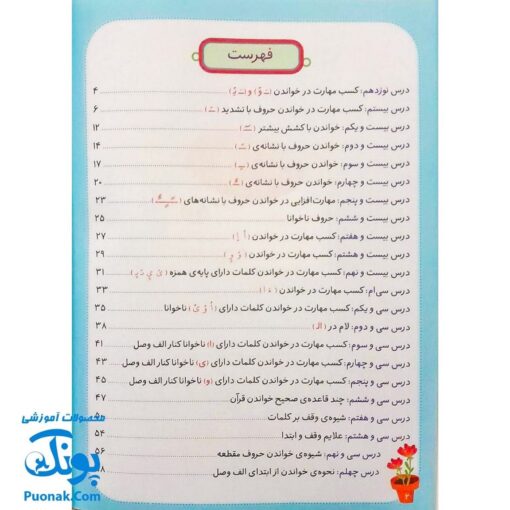 فهرست
درس نوزدهم: کسب مهارت در خواندن ( ـَ وْ) و (ـَ یْ) ۴
درس بیستم: کسب مهارت در خواندن حروف با تشدید ( ـّ ) ۶
درس بیست و یکم: خواندن با کشش بیشتر ( ـٓ ) ۱۲
درس بیست و دوم: خواندن حروف با نشانه‌ی ( ـً ) ۱۴
درس بیست و سوم: خواندن حروف با نشانه‌ی ( ـٍ ) ۱۷
درس بیست و چهارم: خواندن حروف با نشانه‌ی ( ـٌ ) ۲۰
درس بیست و پنجم: مهارت‌افزایی در خواندن حروف با نشانه‌های ( ـً ـٍ ـٌ ) ۲۳
درس بیست و ششم: حروف ناخوانا ۲۵
درس بیست و هفتم: کسب مهارت در خواندن ( أ إ ) ۲۷
درس بیست و هشتم: کسب مهارت در خواندن ۲۹
درس بیست و نهم: کسب مهارت در خواندن کلمات دارای پایه‌ی همزه ۳۱
درس سی‌ام: کسب مهارت در خواندن ۳۳
درس سی و یکم: کسب مهارت در خواندن کلمات دارای ناخوانا ۳۵
درس سی و دوم: لام در (الـ) ۳۸
درس سی و سوم: کسب مهارت در خواندن کلمات دارای (ا) ناخوانا کنار الف وصل ۴۱
درس سی و چهارم: کسب مهارت در خواندن کلمات دارای (ی) ناخوانا کنار الف وصل ۴۳
درس سی و پنجم: کسب مهارت در خواندن کلمات دارای (و) ناخوانا کنار الف وصل ۴۵
درس سی و ششم: چند قاعده‌ی صحیح خواندن قرآن ۴۷
درس سی و هفتم: شیوه‌ی وقف بر کلمات
درس سی و هشتم: علایم وقف و ابتدا ۵۴
درس سی و نهم: شیوه‌ی خواندن حروف مقطعه ۵۶
درس چهلم: نحوه‌ی خواندن از ابتدای الف وصل
محصولات آموزشی
پونک
Puonak.Com